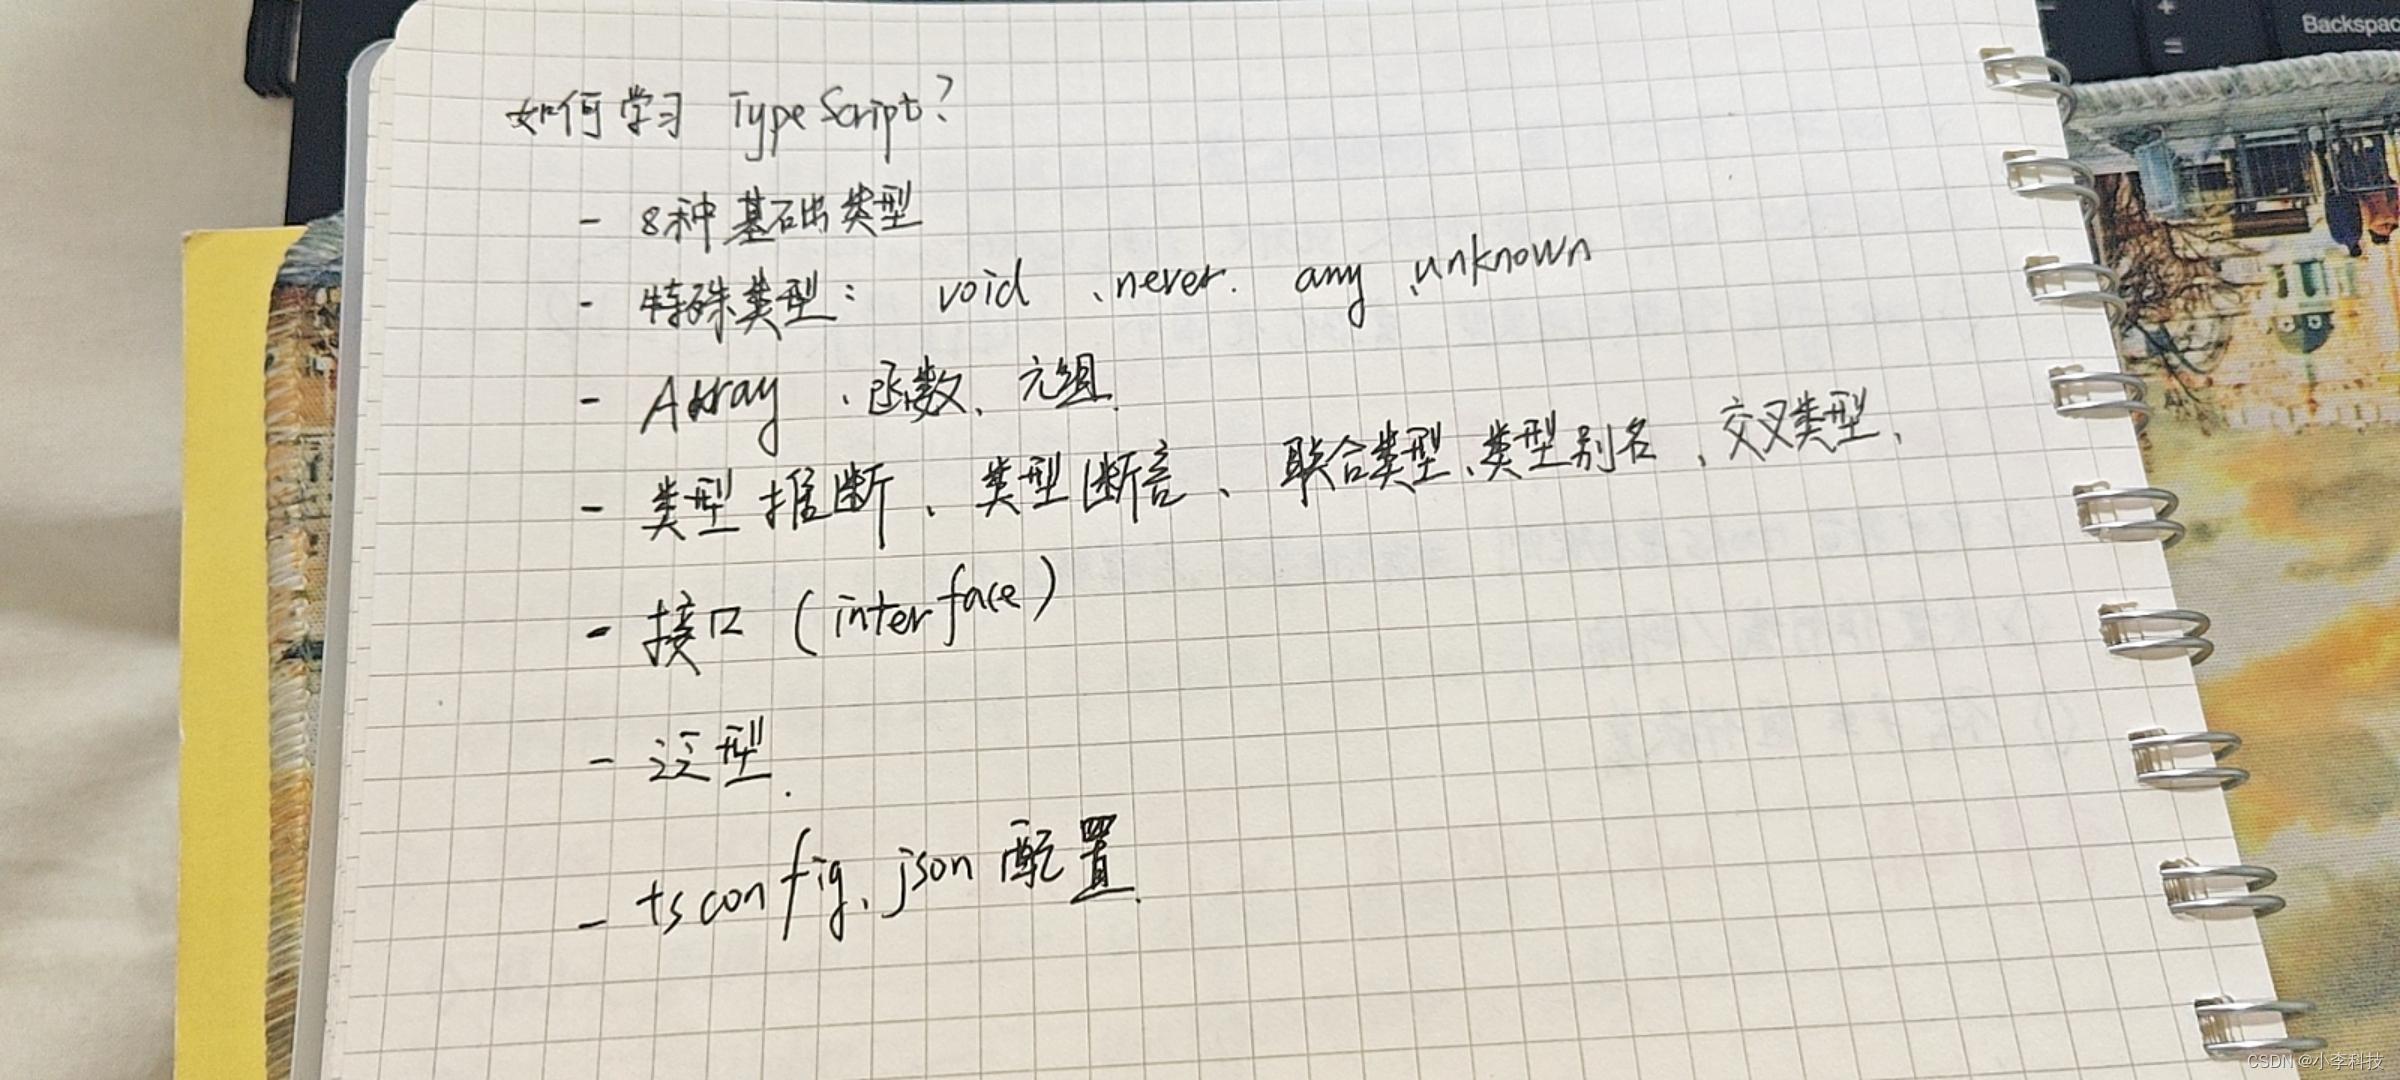 如何学习 TypeScript?
- 8种基础类型
- 特殊类型: void 、never. any 、unknown
- Array 、函数、元组.
- 类型推断、类型断言、联合类型、类型别名、交叉类型、
- 接口 (interface)
- 泛型.
- tsconfig.json 配置.
+
=
Backspac
CSDN @小李科技